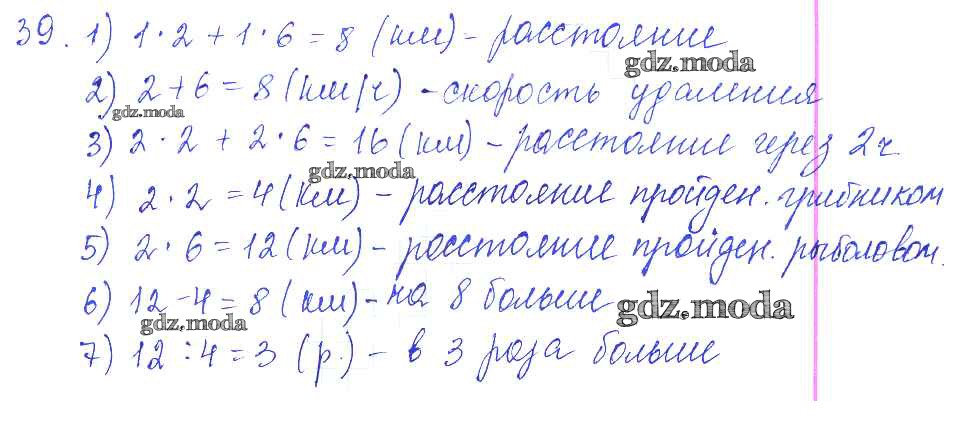 39. 1) 1·2 + 1·6 = 8 (км) - расстояние
gdz.moda
2) 2+6 = 8 (км/ч) - скорость удаления
gdz.moda
3) 2·2 + 2·6 = 16 (км) - расстояние через 2ч
gdz.moda
4) 2·2 = 4 (км) - расстояние пройден. грибником
5) 2·6 = 12 (км) - расстояние пройден. рыболовом.
6) 12-4 = 8 (км) - на 8 больше
gdz.moda
gdz.moda
7) 12:4 = 3 (р.) - в 3 раза больше